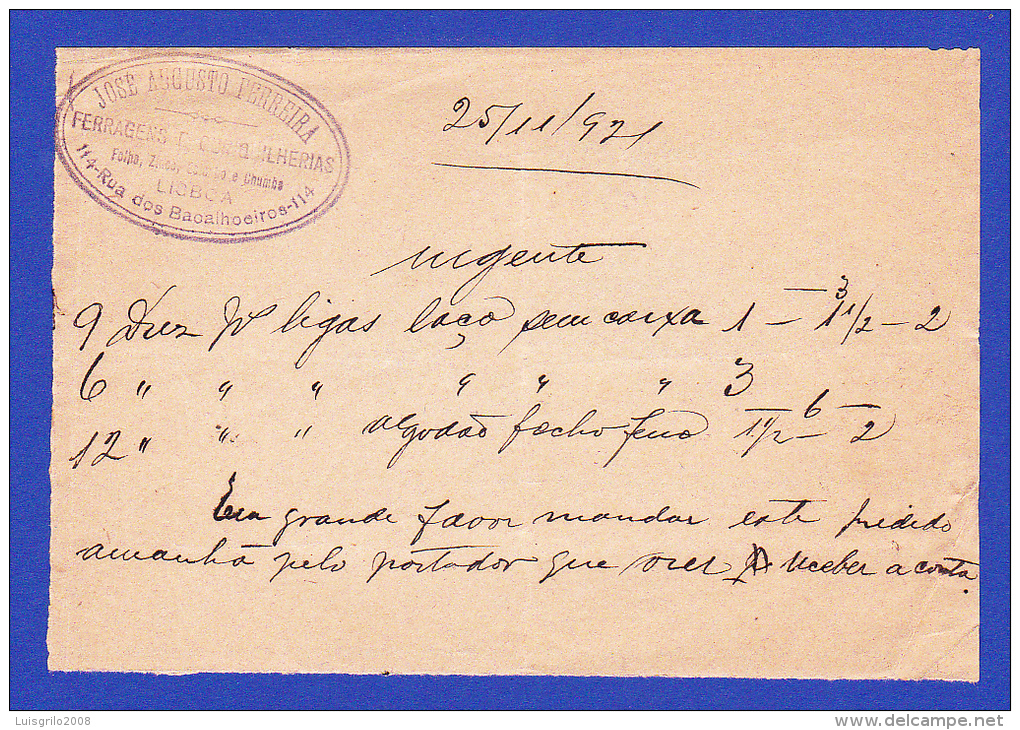 JOSÉ AUGUSTO FERREIRA
FERRAGENS E QUINQUILHERIAS
Folha, Zinco, Estanho e Chumbo
LISBOA
114-Rua dos Bacalhoeiros-114
25/11/921
urgente
9 Duz pª ligas laço sem caixa 1 — 1 1/2 — 2
3
6 " " " " " " 3
12 " " " algodão fecho 1 1/2 — 2
6
grande favor mandar este pedido
amanhã pelo portador que receber a conta.
Luisgrilo2008
www.delcampe.net